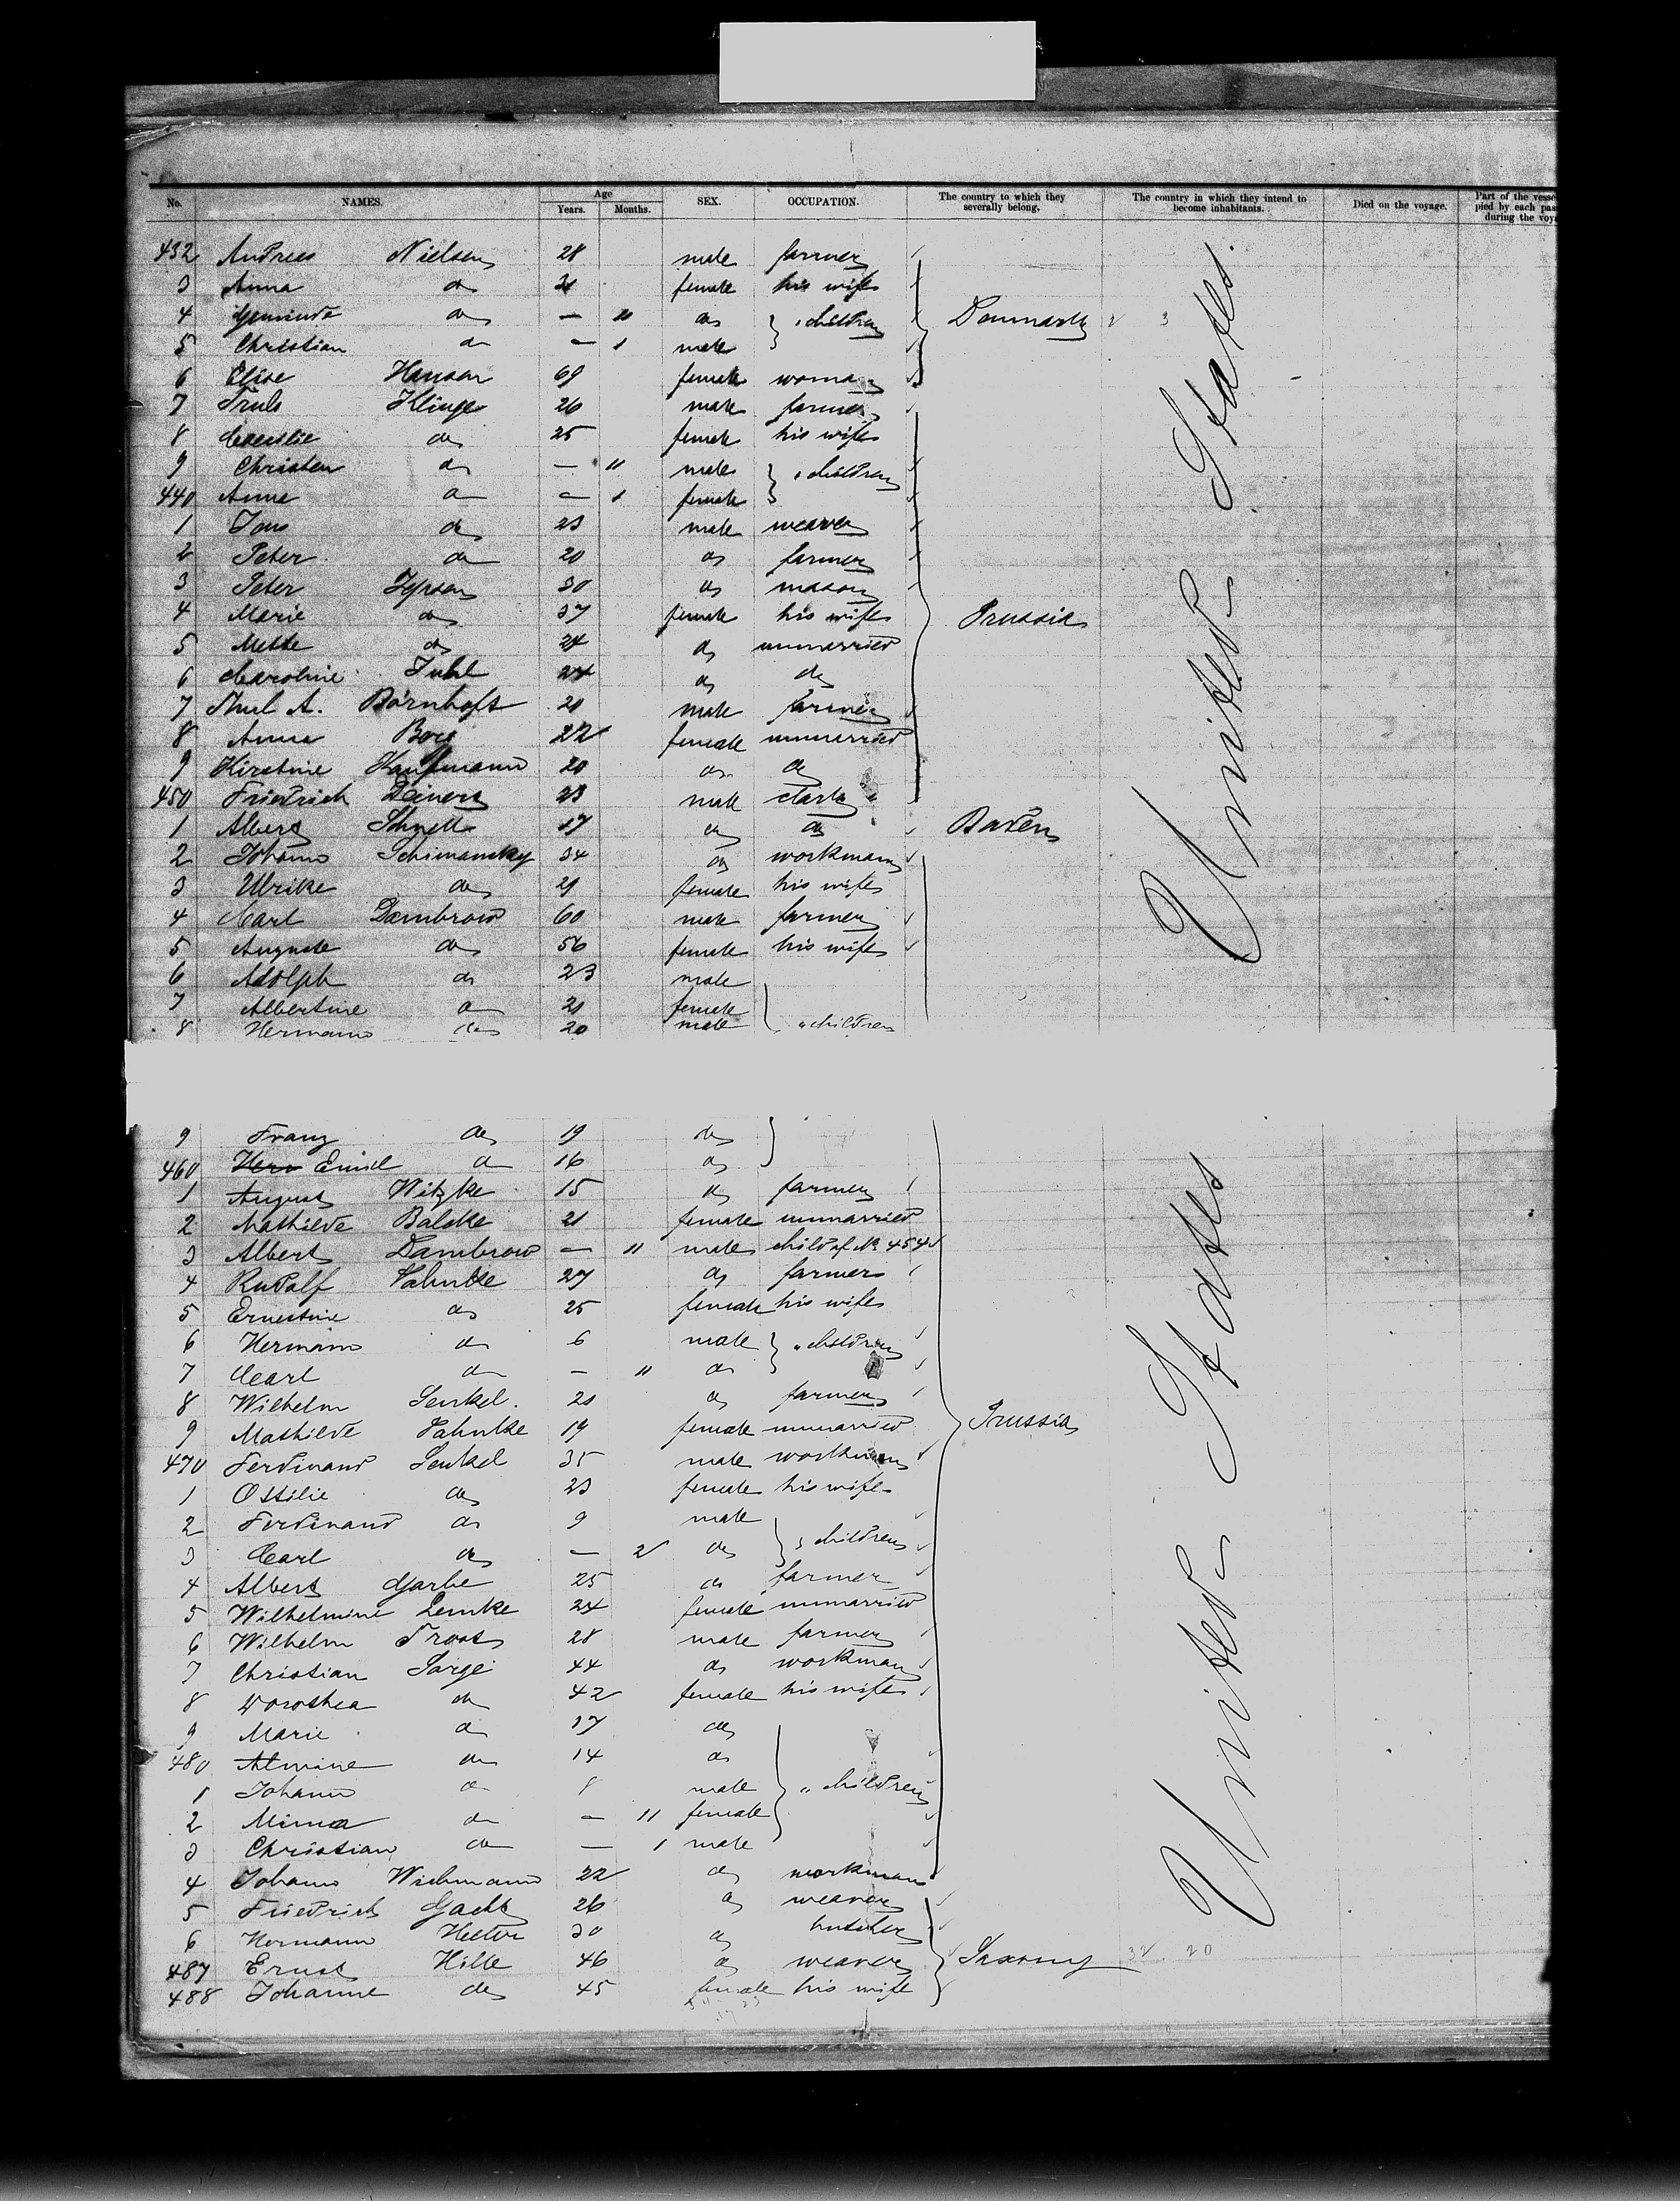 No. NAMES. Age Years. Months. SEX. OCCUPATION. The country to which they severally belong. The country in which they intend to become inhabitants. Died on the voyage. Part of the vesse pied by each pas during the voy
432 Andrees Nielsen 28 male farmer
3 Anna do 31 female his wife
4 do — 11 do children Denmark
5 Christian do — 1 male
6 Elise Hansen 69 female woman
7 Truls Klinge 26 male farmer
8 Caecilie do 25 female his wife
9 Christen do — 11 male children
440 Anna do — 1 female
1 Jens do 23 male weaver
2 Peter do 20 do farmer
3 Peter 30 do mason
4 Marie do 37 female his wife Prussia
5 Mette do 24 do unmarried
6 Caroline Juhl 24 do do
7 A. Börnhoft 20 male farmer
8 Anna Boy 22 female unmarried
9 Kirstine Kaufmann 20 do do
450 Friedrich Deiners 23 male clark
1 Albert Schnell 17 do do Baden
2 Johann Schimansky 34 do workman
3 Ulrike do 29 female his wife
4 Carl Dambrow 60 male farmer
5 Auguste do 56 female his wife
6 Adolph do 23 male
7 Albertine do 21 female
8 Hermann do 20 male children
United States.
9 Franz do 19 do
460 Herm Emil do 16 do
1 August Witzke 15 do farmer
2 Mathilde Balcke 21 female unmarried
3 Albert Dambrow — 11 male child of No 454
4 Rudolf Fahnke 27 do farmer
5 Ernestine do 25 female his wife
6 Hermann do 6 male children
7 Carl do — 11 do
8 Wilhelm Senkel. 21 do farmer
9 Mathilde Fahnke 19 female unmarried Prussia
470 Ferdinand Senkel 35 male workman
1 Ottilie do 23 female his wife
2 Ferdinand do 9 male
3 Carl do — 2 do children
4 Albert Garbe 25 do farmer
5 Wilhelmine Lemke 24 female unmarried
6 Wilhelm Troost 28 male farmer
7 Christian Sorge 44 do workman
8 Dorothea do 42 female his wife
9 Marie do 17 do
480 Alwine do 14 do
1 Johann do 8 male children
2 Minna do — 11 female
3 Christian do — 1 male
4 Johann Wichmann 22 do workman
5 Friedrich Gacht 26 do weaver
6 Hermann Hector 30 do butcher
487 Ernst Hille 46 do weaver Saxony 32. 20
488 Johanne do 45 female his wife
United States